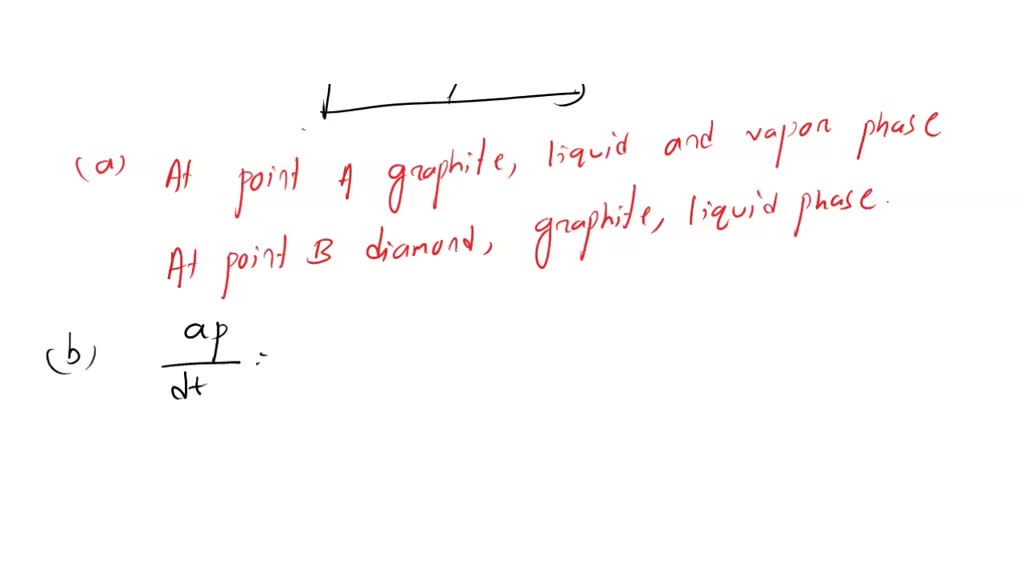 (a) At point A graphite, liquid and vapor phase
At point B diamond, graphite, liquid phase.
(b) ap
dt :